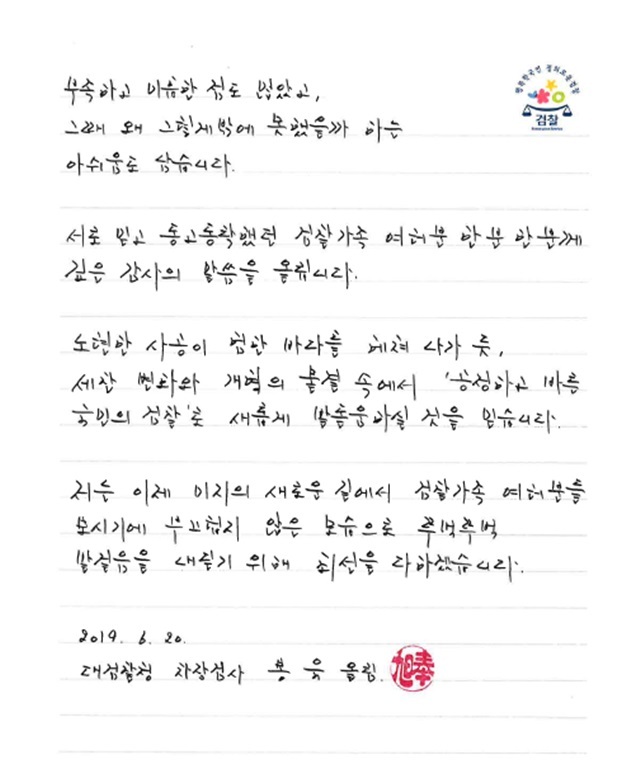 부족하고 미흡한 점도 많았고,
그때 왜 그렇게밖에 못했을까 하는
아쉬움도 남습니다.
서로 믿고 동고동락했던 검찰가족 여러분 한분 한분께
깊은 감사의 말씀을 올립니다.
노련한 사공이 험한 바다를 헤쳐 나가 듯,
세찬 변화와 개혁의 물결 속에서 '공정하고 바른
국민의 검찰'로 새롭게 발돋움하실 것을 믿습니다.
저는 이제 미지의 새로운 길에서 검찰가족 여러분들
보시기에 부끄럽지 않은 모습으로 뚜벅뚜벅
발걸음을 내딛기 위해 최선을 다하겠습니다.
2019. 6. 20.
대검찰청 차장검사 봉 욱 올림.
검찰